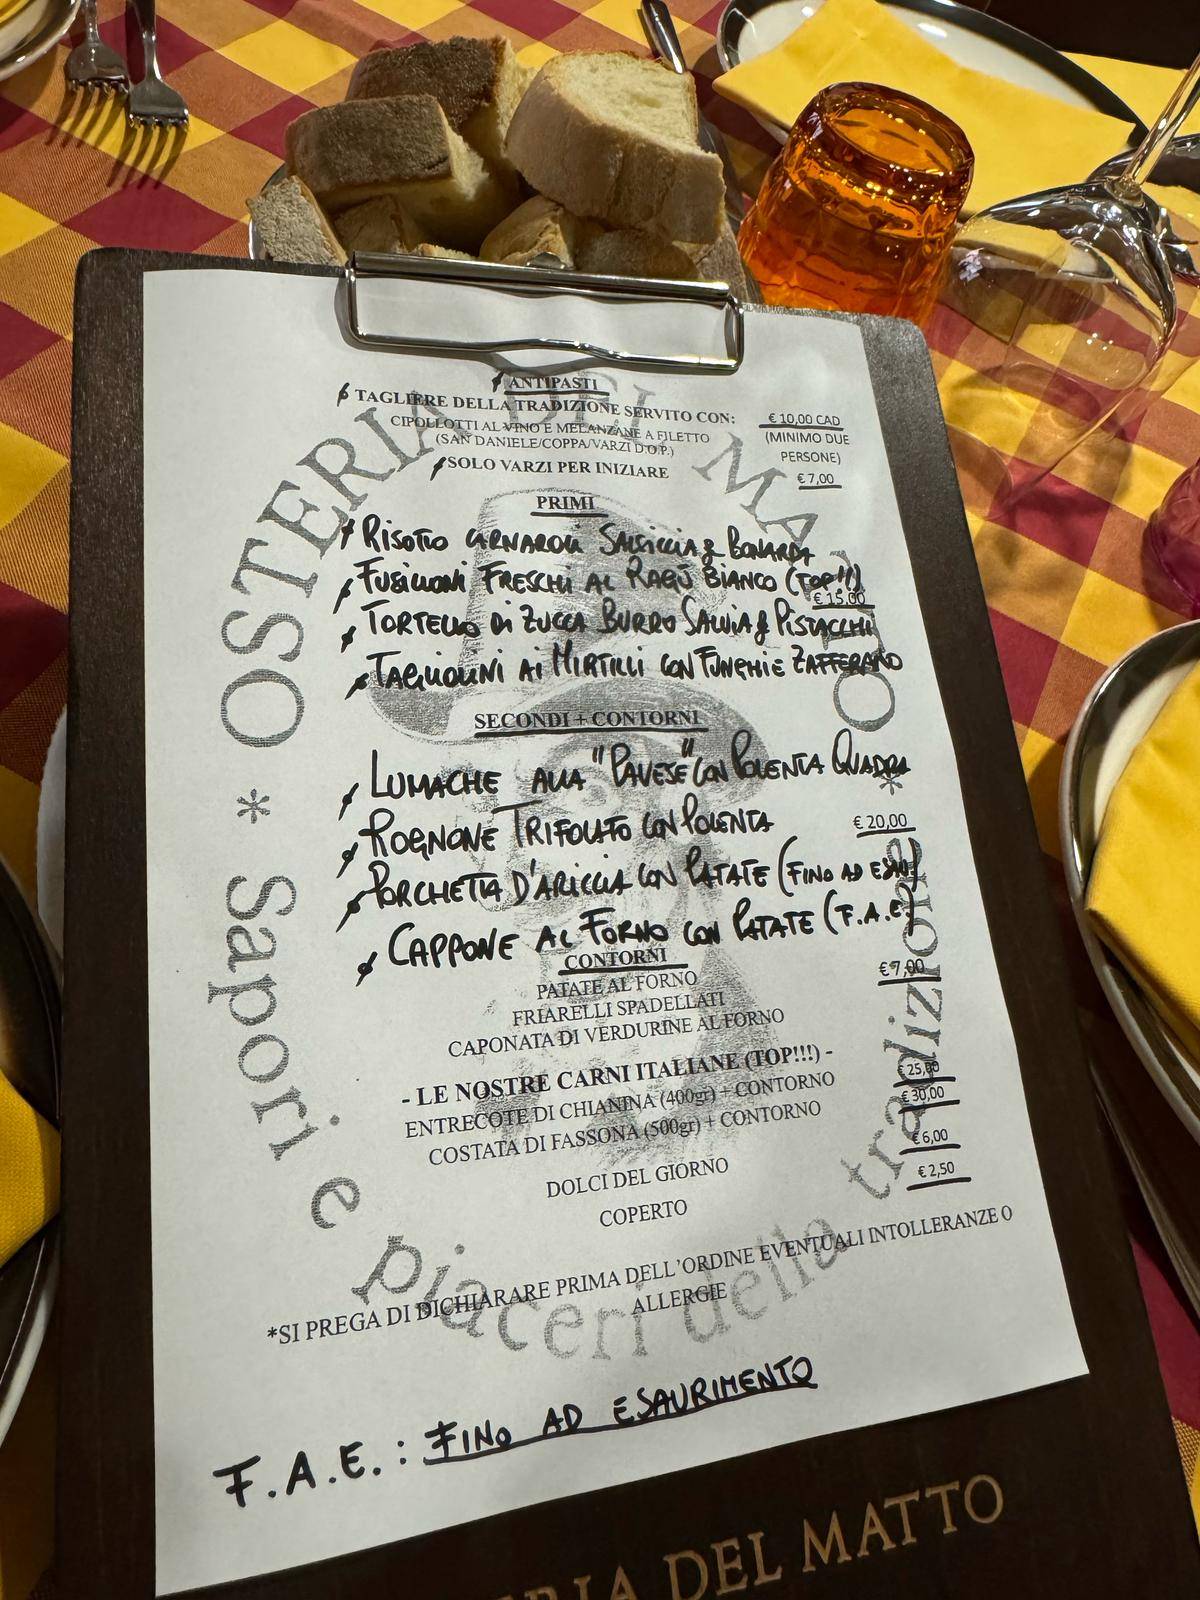 ANTIPASTI
TAGLIERE DELLA TRADIZIONE SERVITO CON:
€ 10,00 CAD
CIPOLLOTTI AL VINO E MELANZANE A FILETTO
(MINIMO DUE
(SAN DANIELE/COPPA/VARZI D.O.P.)
PERSONE)
SOLO VARZI PER INIZIARE
€ 7,00
PRIMI
RISOTTO CARNAROLI SALSICCIA & BONARDA
FUSILLONI FRESCHI AL RAGÙ BIANCO (TOP!!)
€ 15,00
TORTELLO DI ZUCCA BURRO SALVIA & PISTACCHI
TAGLIOLINI AI MIRTILLI CON FUNGHI E ZAFFERANO
SECONDI + CONTORNI
LUMACHE ALLA "PAVESE" CON POLENTA QUADRA
ROGNONE TRIFOLATO CON POLENTA
€ 20,00
PORCHETTA D'ARICCIA CON PATATE (FINO AD ESAU.)
CAPPONE AL FORNO CON PATATE (F.A.E.)
CONTORNI
€ 7,00
PATATE AL FORNO
FRIARELLI SPADELLATI
CAPONATA DI VERDURINE AL FORNO
- LE NOSTRE CARNI ITALIANE (TOP!!!) -
ENTRECOTE DI CHIANINA (400gr) + CONTORNO
€ 25,00
COSTATA DI FASSONA (500gr) + CONTORNO
€ 30,00
DOLCI DEL GIORNO
€ 6,00
COPERTO
€ 2,50
*SI PREGA DI DICHIARARE PRIMA DELL'ORDINE EVENTUALI INTOLLERANZE O
ALLERGIE
F.A.E.: FINO AD ESAURIMENTO
OSTERIA DEL MATTO * Sapori e piaceri della tradizione *
ERIA DEL MATTO